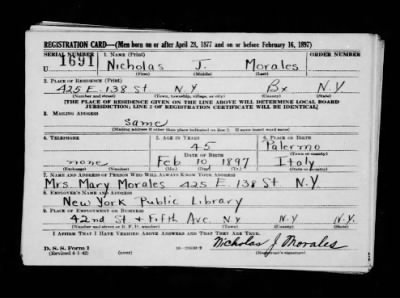 REGISTRATION CARD—(Men born on or after April 28, 1877 and on or before February 16, 1897)
SERIAL NUMBER 1. NAME (Print)
U 1691 Nicholas J. Morales
(First) (Middle) (Last)
2. PLACE OF RESIDENCE (Print)
425 E. 138 St N.Y Bx N.Y
(Number and street) (Town, township, village, or city) (County) (State)
[THE PLACE OF RESIDENCE GIVEN ON THE LINE ABOVE WILL DETERMINE LOCAL BOARD
JURISDICTION; LINE 2 OF REGISTRATION CERTIFICATE WILL BE IDENTICAL]
3. MAILING ADDRESS
Same
[Mailing address if other than place indicated on line 2. If same insert word same]
4. TELEPHONE 5. AGE IN YEARS 6. PLACE OF BIRTH
45 Palermo
DATE OF BIRTH (Town or county)
none Feb 10 1897 Italy
(Exchange) (Number) (Mo.) (Day) (Yr.) (State or country)
7. NAME AND ADDRESS OF PERSON WHO WILL ALWAYS KNOW YOUR ADDRESS
Mrs. Mary Morales 425 E 138 St N.Y.
8. EMPLOYER'S NAME AND ADDRESS
New York Public Library
9. PLACE OF EMPLOYMENT OR BUSINESS
42nd St + Fifth Ave. N.Y N.Y N.Y.
(Number and street or R. F. D. number) (Town) (County) (State)
I AFFIRM THAT I HAVE VERIFIED ABOVE ANSWERS AND THAT THEY ARE TRUE.
D. S. S. Form 1
(Revised 4-1-42) (over)
Nicholas J. Morales
(Registrant's signature)